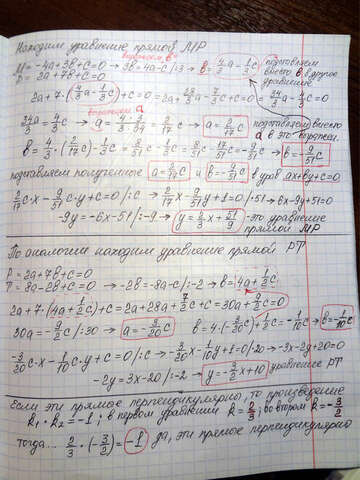 Находим уравнение прямой MP
M = -4a+3b+c=0 → 3b=4a-c/:3 → b = 4/3 a - 1/3 c подставляем
P = 2a+7b+c=0 вместо b в другое уравнение
2a+7·(4/3 a - 1/3 c)+c=0 = 2a+28/3 a - 7/3 c+c=0 = 34/3 a - 4/3 c
34/3 a = 4/3 c → a = 4/3·3/34 = 2/17 c → a = 2/17 c подставляем вместо
выражаем a
b = 4/3·(2/17 c) - 1/3 c = 8/51 c - 1/3 c = 8/51 c - 17/51 c = -9/51 c → b = -9/51 c
подставляем полученные a = 2/17 c и b = -9/51 c в урав ax+by+c=0
2/17 c·x - 9/51 c·y+c=0/:c → 2/17 x - 9/51 y+1=0/·51 → 6x-9y+51=0
-9y=-6x-51/:-9 → y = 2/3 x + 51/9 - это уравнение
прямой MP
По аналогии находим уравнение прямой PT
P = 2a+7b+c=0
T = 8a-2b+c=0 → -2b=-8a-c/:-2 → b = 4a + 1/2 c
2a+7·(4a + 1/2 c)+c=0 = 2a+28a + 7/2 c+c = 30a + 9/2 c=0
30a = -9/2 c/:30 → a = -3/20 c b = 4·(-3/20 c) + 1/2 c = -1/10 c → b = -1/10 c
-3/20 c·x - 1/10 c·y+c=0/:c → -3/20 x - 1/10 y+1=0/·20 → -3x-2y+20=0
-2y=3x-20/:-2 → y = -3/2 x+10 уравнение PT
Если эти прямые перпендикулярно, то произведение
k₁·k₂=-1; в первом уравнении k = 2/3; во втором k = -3/2
тогда... 2/3·(-3/2) = -1 да, эти прямые перпендикулярно